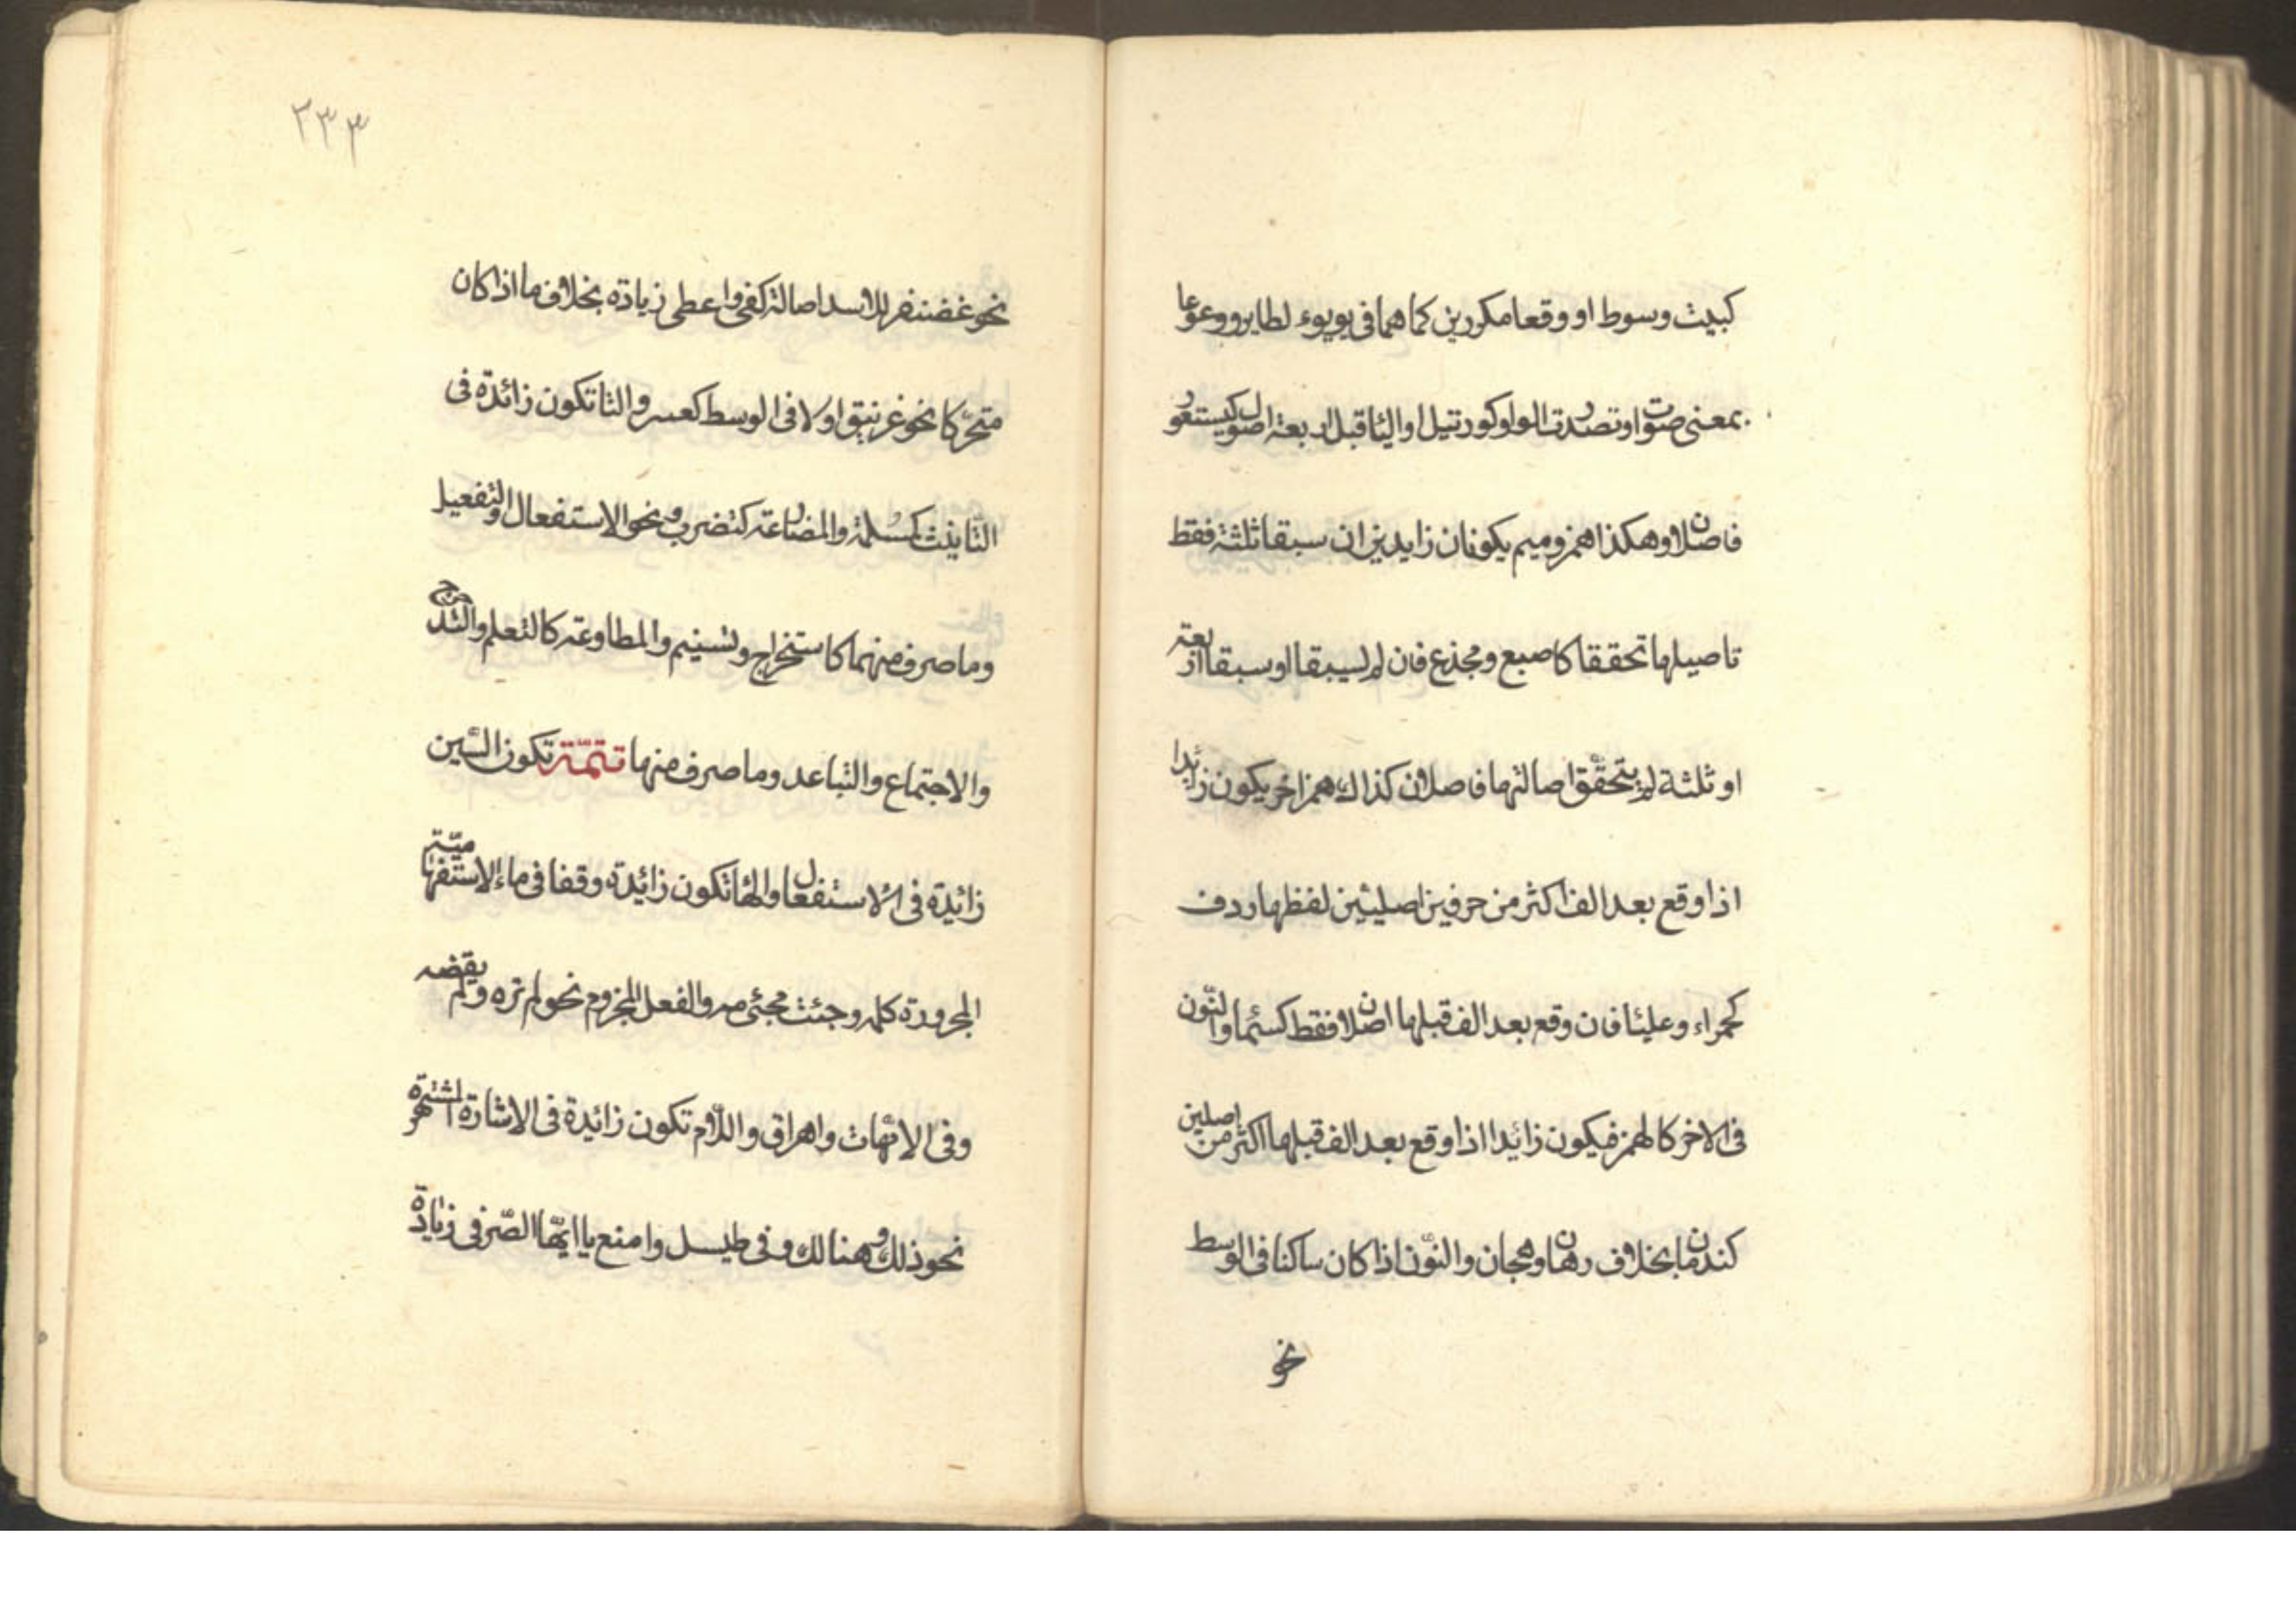 كبيث وسوط او وقعا مكررين كما هما فى يويوء لطاير ووعوعا
بمعنى صوّت او تصدرت الواو كورنتيل او اليا قبل اربعة اصول كيستعور
فاصلان وهكذا همز وميم يكونان زايدين ان سبقا ثلثة فقط
تاصيلها تحققا كاصبع ومجذع فان لم يسبقا او سبقا اربعة
او ثلثة لم يتحقّق اصالتها فاصلان كذاك همز اخر يكون زائدا
اذا وقع بعد الف اكثر من حرفين اصليين لفظها ردف
كحمراء وعلبا فان وقع بعد الف قبلها اصلان فقط كسئما والنّون
فى الاخر كالهمز فيكون زائدا اذا وقع بعد الف قبلها اكثر من اصلين
كندمان بخلاف رهان وهجان والنّون اذا كان ساكنا فى الوسط
نحو
٢٣٣
نحو غضنفر للاسد اصالة كفى واعطى زيادة بخلاف ما اذا كان
متحرّكا نحو غرنيق او لا فى الوسط كعسر والتا تكون زائدة فى
التانيث كمسلمة والمضارعة كتضرب ونحو الاستفعال والتفعيل
وما صرف منهما كاستخراج وتسنيم والمطاوعة كالتعلم والتدحرج
والاجتماع والتباعد وما صرف منها تتمّة تكون السّين
زائدة فى الاستفعال والها تكون زائدة وقفا فى ماء الاستفهاميّة
المجرورة كلمه وجئت مجئى مه والفعل المجزوم نحو لم تره ولم يقضه
وفى الامّهات واهراق واللّام تكون زائدة فى الاشارة المشتهرة
نحو ذلك وهنالك وفى طيسل وامنع يا ايّها الصّرفى زيادة